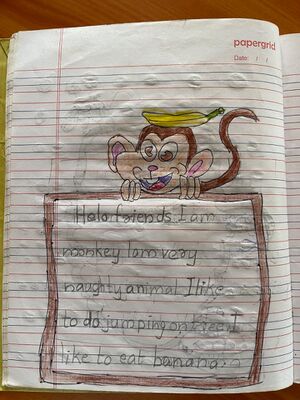 papergrid
Date: / /
Helo friends I am
monkey I am very
naughty animal I like
to do jumping on tree I
like to eat banana.